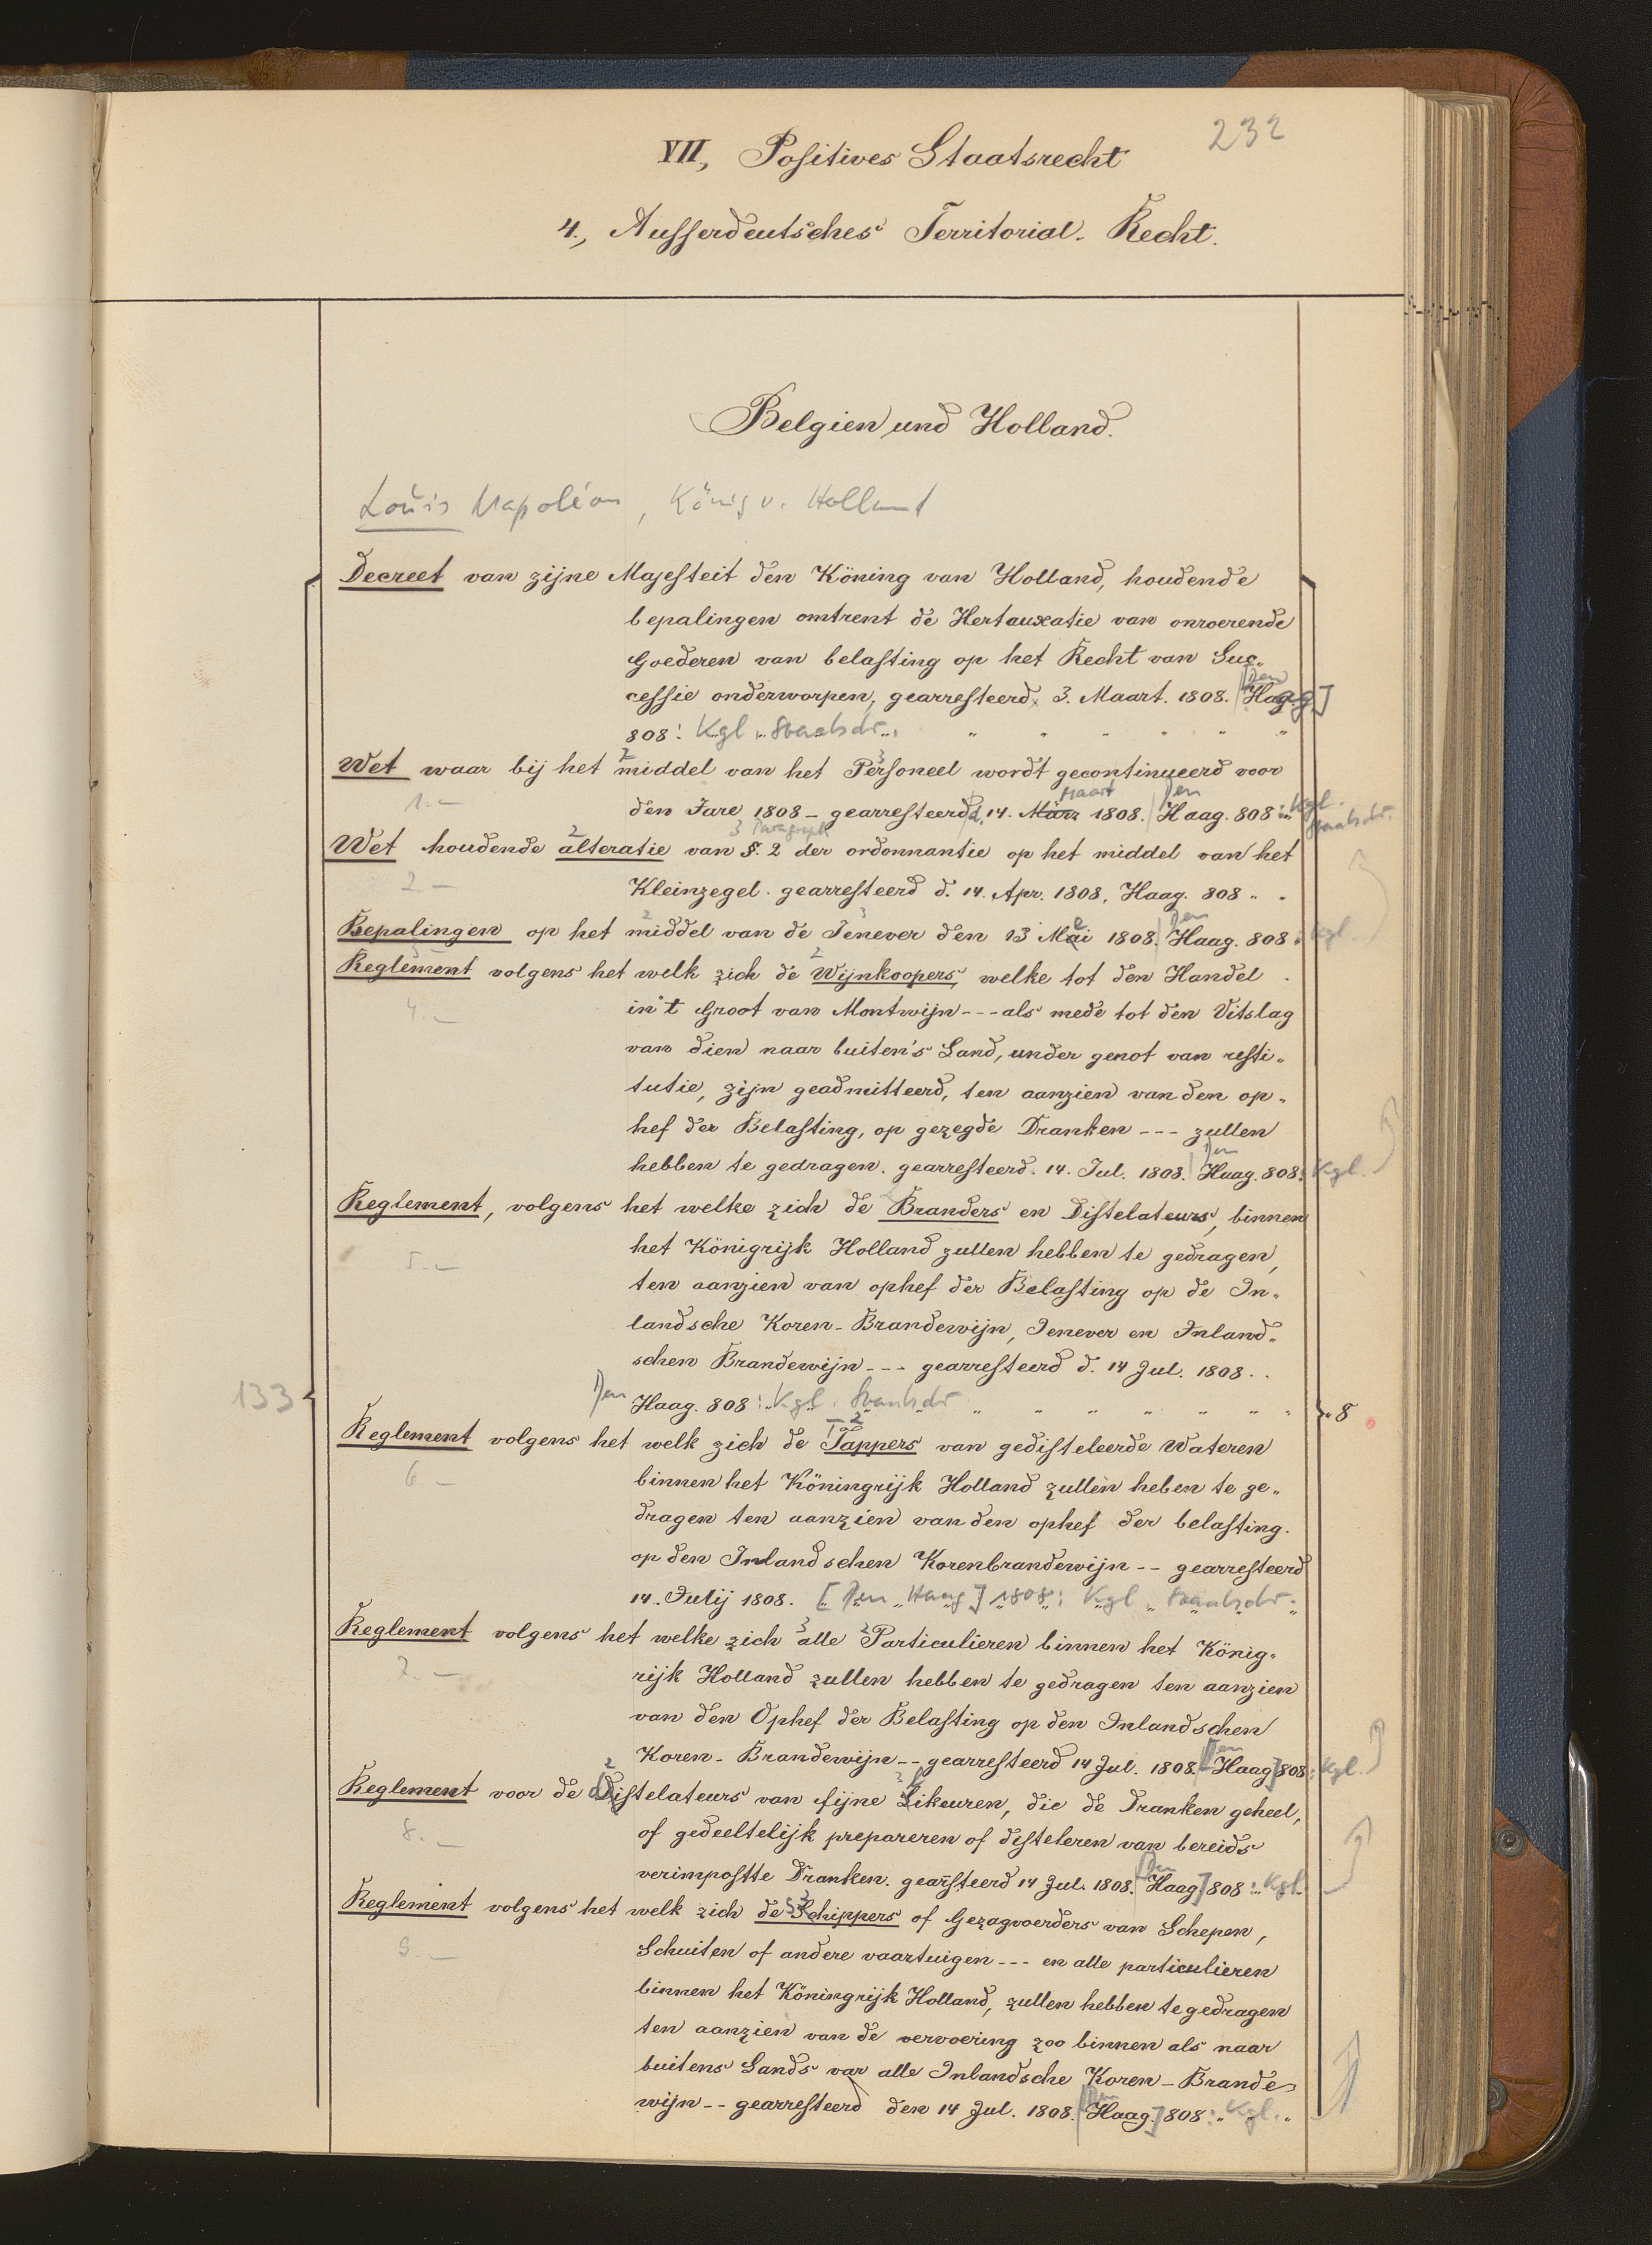 232
VII, Positives Staatsrecht
4., Ausserdeutsches Territorial-Recht.
Belgien und Holland.
Louis Napoléon, König v. Holland
Decreet van zijne Majesteit den Köning van Holland, houdende
bepalingen omtrent de Hertauxatie van onroerende
Goederen van belasting op het Recht van Suc-
cessie onderworpen, gearresteerd. 3. Maart. 1808. [Den Haag]
808: Kgl. Staatsdr.
Wet waar bij het 2 middel van het 3 Personeel wordt gecontinueerd voor
1.- den Jare 1808 - gearresteerd d. 14. März Maart 1808. Den Haag. 808: Kgl. Staatsdr.
Wet houdende 2 alteratie van 3 Paragraph §. 2 der ordonnantie op het middel van het
2.- Kleinzegel. gearresteerd d. 14. Apr. 1808, Haag. 808 " "
Bepalingen op het 2 middel van de 3 Jenever den 13 Mei 1808. Den Haag. 808: Kgl.
Reglement volgens het welk zich de 2 Wijnkoopers, welke tot den Handel
4.- in't Groot van Montwijn --- als mede tot den Vitslag
van dien naar buiten's Land, under genot van resti-
tutie, zijn geadmitteerd, ten aanzien van den op-
hef der Belasting, op gezegde Dranken --- zullen
hebben te gedragen. gearresteerd. 14. Jul. 1808. Den Haag. 808: Kgl.
Reglement, volgens het welke zich de Branders en Distelateurs, binnen
5.- het Königrijk Holland zullen hebben te gedragen,
ten aanzien van ophef der Belasting op de In-
landsche Koren-Brandewijn, Jenever en Inland-
schen Brandewijn --- gearresteerd d. 14 Jul. 1808..
133 Den Haag. 808: Kgl. Staatsdr. " " " " " " " 8
Reglement volgens het welk zich de 2 Tappers van gedisteleerde Wateren
6 - binnen het Köningrijk Holland zullen heben te ge-
dragen ten aanzien van den ophef der belasting.
op den Inlandschen Korenbrandewijn -- gearresteerd
14. Julij 1808. [Den Haag] 1808: Kgl. Staatsdr.
Reglement volgens het welke zich 3 alle 2 Particulieren binnen het König-
7.- rijk Holland zullen hebben te gedragen ten aanzien
van den Ophef der Belasting op den Inlandschen
Koren-Brandewijn -- gearresteerd 14 Jul. 1808. [Den Haag] 808: Kgl.
Reglement voor de 2 distelateurs van fijne 3 Likeuren, die de Dranken geheel,
8.- of gedeeltelijk prepareren of disteleren van bereids
verimpostte Dranken. gearsteerd 14 Jul. 1808. [Den Haag] 808: Kgl.
Reglement volgens het welk zich de Schippers of Gezagvoerders van Schepen,
9.- Schuiten of andere vaartuigen --- en alle particulieren
binnen het Köningrijk Holland, zullen hebben te gedragen
ten aanzien van de vervoering zoo binnen als naar
buitens Lands var alle Inlandsche Koren-Brande-
wijn -- gearresteerd den 14 Jul. 1808. [Den Haag.] 808: Kgl. "